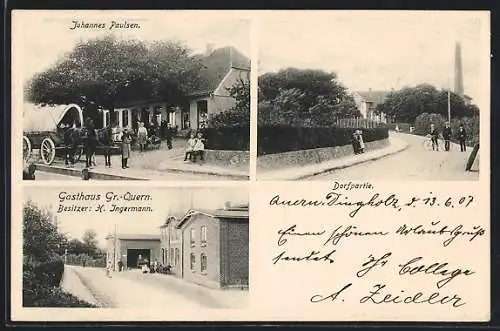 Johannes Paulsen.
Dorfpartie.
Gasthaus Gr.-Quern.
Besitzer: H. Ingermann.
d. 13.6.07
Einen schönen Urlaubsgruß
sendet Ihr College
A. Zeidler